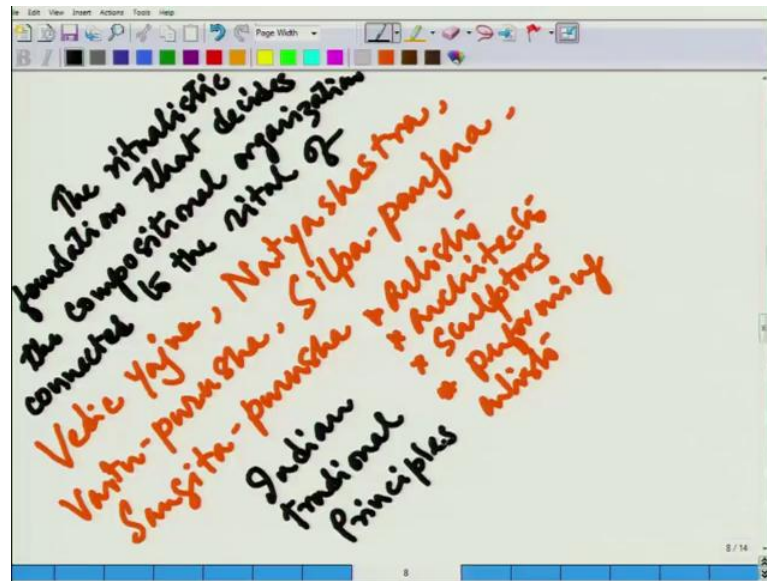 File Edit View Insert Actions Tools Help
Page Width
The ritualistic
foundation that decides
the compositional organization
connected to the ritual of
Vedic Yajna, Natyashastra,
Vastu-purusha, Silpa-panjara,
Sangita-purusha
* Artists
* Architects
* Sculptors
* performing
artists
Indian
tradional
Principles
8 / 14
8